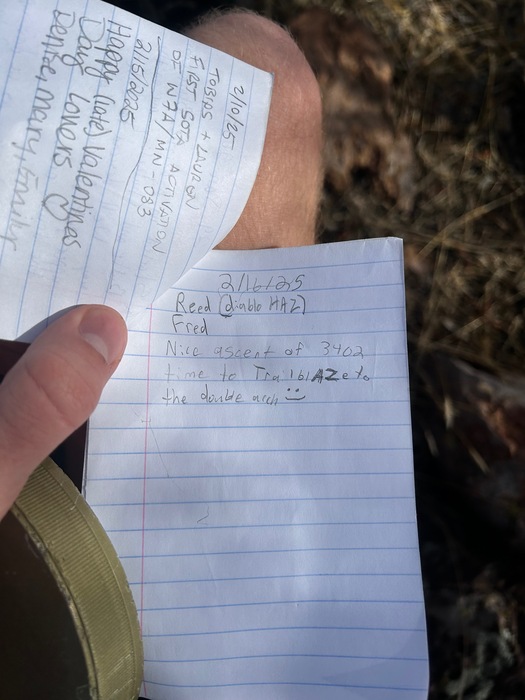 2/10/25
TOBIAS + LAUREN
FIRST SOTA ACTIVATION
OF W7A/MN-083
2/15/2025
Happy (late) Valentines
Day Lovers
Denise, Mary, Emily
2/16/25
Reed (diablo HAZ)
Fred
Nice ascent of 3402
time to TrailblAZe to
the double arch :)